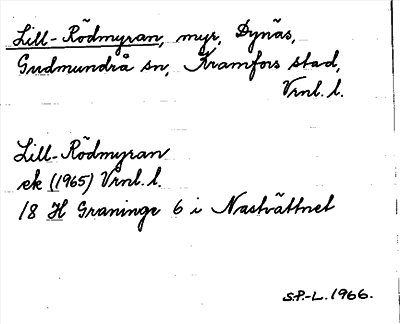 Lill-Rödmyran, myr, Dynäs,
Gudmundrå sn, Kramfors stad,
Vrnl. l.
Lill-Rödmyran
ek (1965) Vrnl. l.
18 H Graninge 6 i Nästvättnet
S.P.-L. 1966.